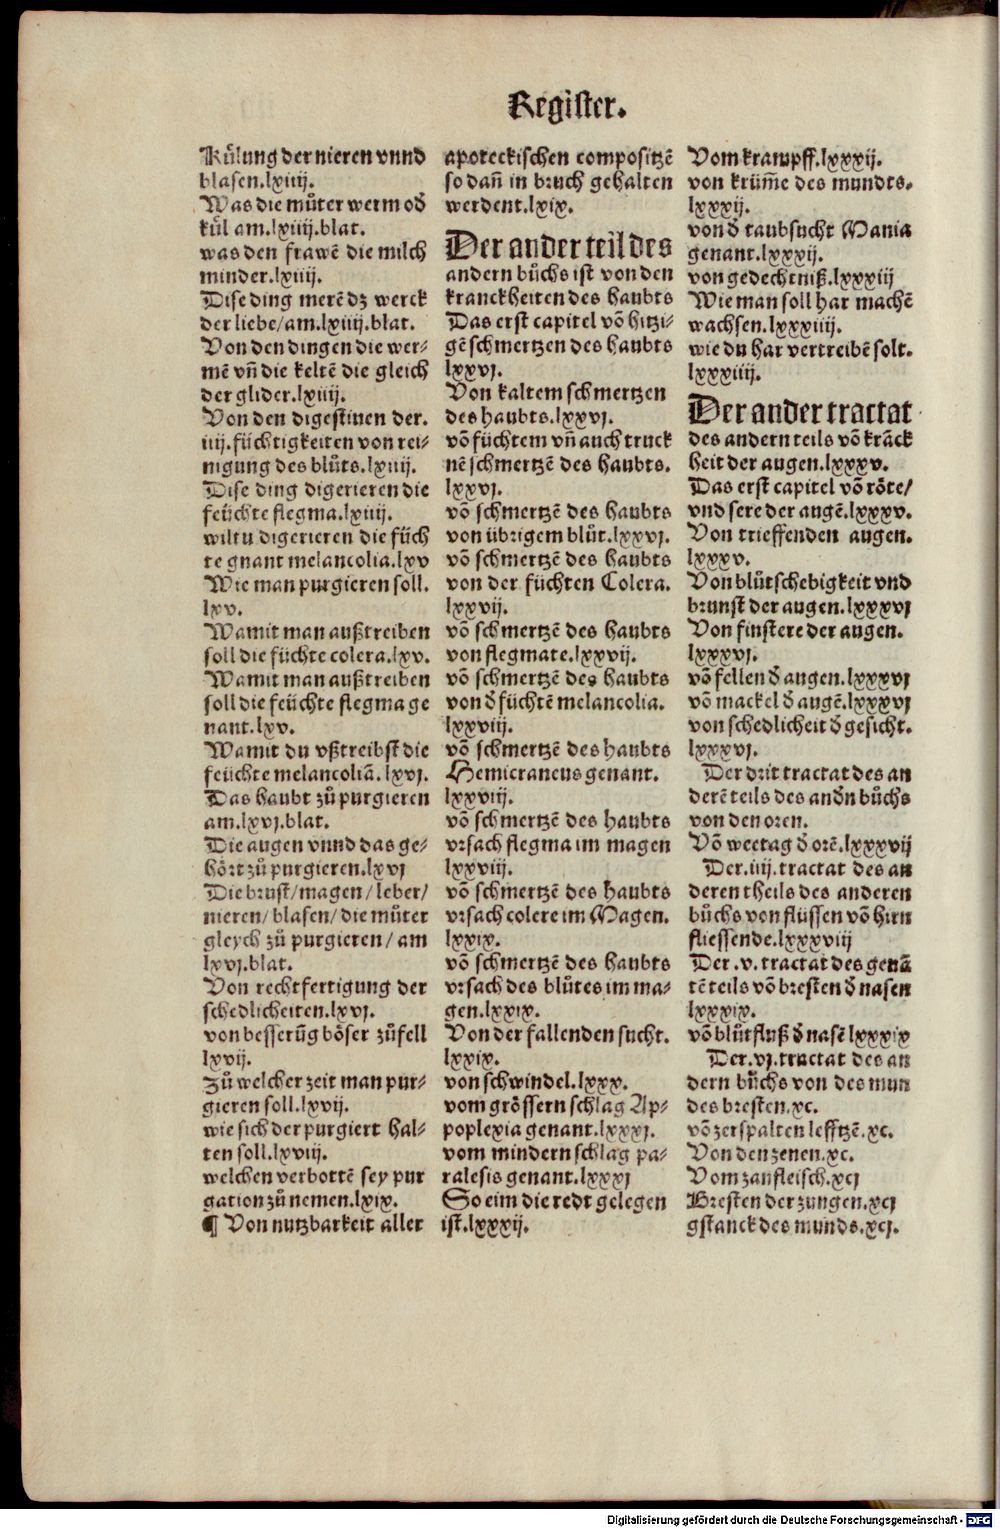 Register.
Kůlung der nieren vnnd
blasen.lxiiij.
Was die můter werm oď
kůl am.lxiiij.blat.
was den frawẽ die milch
minder.lxiiij.
Dise ding merẽ dz werck
der liebe/am.lxiiij.blat.
Von den dingen die wer-
mẽ vñ die keltẽ die gleich
der glider.lxiiij.
Von den digestiuen der.
iiij.füchtigkeiten von rei-
nigung des blůts.lxiiij.
Dise ding digerieren die
feüchte flegma.lxiiij.
wiltu digerieren die füch
te gnant melancolia.lxv
Wie man purgieren soll.
lxv.
Wamit man außtreiben
soll die füchte colera.lxv.
Wamit man außtreiben
soll die feüchte flegma ge
nant.lxv.
Wamit du vßtreibst die
feüchte melancoliã.lxvj.
Das haubt zů purgieren
am.lxvj.blat.
Die augen vnnd das ge-
hört zů purgieren.lxvj
Die brust/magen/leber/
nieren/blasen/die můter
gleych zů purgieren/am
lxvj.blat.
Von rechtfertigung der
schedlicheiten.lxvj.
von besserũg böser zůfell
lxvij.
Zů welcher zeit man pur-
gieren soll.lxvij.
wie sich der purgiert hal-
ten soll.lxviij.
welchen verbottẽ sey pur
gation zů nemen.lxix.
¶ Von nutzbarkeit aller
apoteckischen compositzẽ
so dañ in bruch gehalten
werdent.lxix.
Der ander teil des
andern bůchs ist von den
kranckheiten des haubts
Das erst capitel võ hitzi-
gẽ schmertzen des haubts
lxxvj.
Von kaltem schmertzen
des haubts.lxxvj.
võ füchtem vñ auch truck
nẽ schmertzẽ des haubts.
lxxvj.
võ schmertzẽ des haubts
von übrigem blůt.lxxvj.
võ schmertzẽ des haubts
von der füchten Colera.
lxxvij.
võ schmertzẽ des haubts
von flegmate.lxxvij.
võ schmertzẽ des haubts
von ď füchtẽ melancolia.
lxxviij.
võ schmertzẽ des haubts
Hemicraneus genant.
lxxviij.
võ schmertzẽ des haubts
vrsach flegma im magen
lxxviij.
võ schmertzẽ des haubts
vrsach colere im Magen.
lxxix.
võ schmertzẽ des haubts
vrsach des blůtes im ma-
gen.lxxix.
Von der fallenden sucht.
lxxix.
von schwindel.lxxx.
vom grössern schlag Ap-
poplexia genant.lxxxj.
vom mindern schlag pa-
ralesis genant.lxxxj
So eim die redt gelegen
ist.lxxxij.
Vom krampff.lxxxij.
von krüm̃e des mundts.
lxxxij.
von ď taubsucht Mania
genant.lxxxij.
von gedechtniß.lxxxiij
Wie man soll har machẽ
wachsen.lxxxiiij.
wie du har vertreibẽ solt.
lxxxiiij.
Der ander tractat
des andern teils võ krãck
heit der augen.lxxxv.
Das erst capitel võ röte/
vnd sere der augẽ.lxxxv.
Von trieffenden augen.
lxxxv.
Von blůtschebigkeit vnd
brunst der augen.lxxxvj
Von finstere der augen.
lxxxvj.
võ fellen ď augen.lxxxvj
võ mackel ď augẽ.lxxxvj
von schedlicheit ď gesicht.
lxxxvj.
Der drit tractat des an
derẽ teils des anďn bůchs
von den oren.
Võ weetag ď orẽ.lxxxvij
Der.iiij.tractat des an
deren theils des anderen
bůchs von flüssen võ hirn
fliessende.lxxxviij
Der.v.tractat des genã
tẽ teils võ bresten ď nasen
lxxxix.
võ blůtfluß ď nasẽ lxxxix
Der.vj.tractat des an
dern bůchs von des mun
des bresten.xc.
võ zerspalten lefftzẽ.xc.
Von den zenen.xc.
Vom zanfleisch.xcj
Bresten der zungen.xcj
gstanck des munds.xcj.
Digitalisierung gefördert durch die Deutsche Forschungsgemeinschaft - DFG